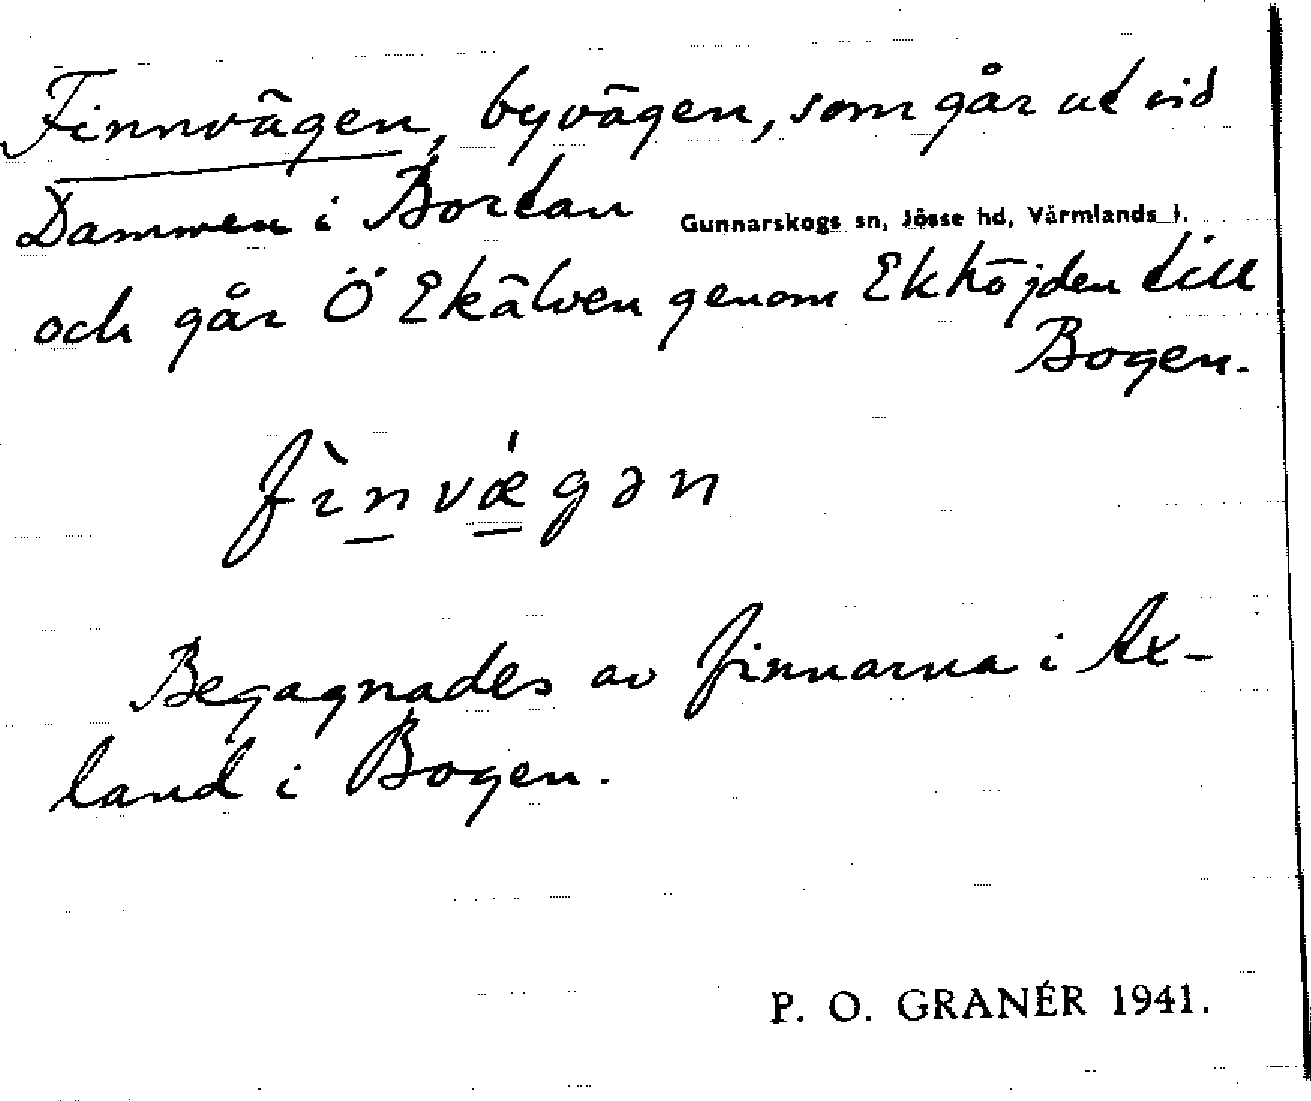 Finnvägen, byvägen, som går ut vid
Dammen i Bortan Gunnarskogs sn, Jösse hd, Värmlands l.
och går Ö Ekälven genom Ekhöjden till
Bogen.
fìnvǽgən
Begagnades av finnarna i Ax-
land i Bogen.
P. O. GRANÉR 1941.